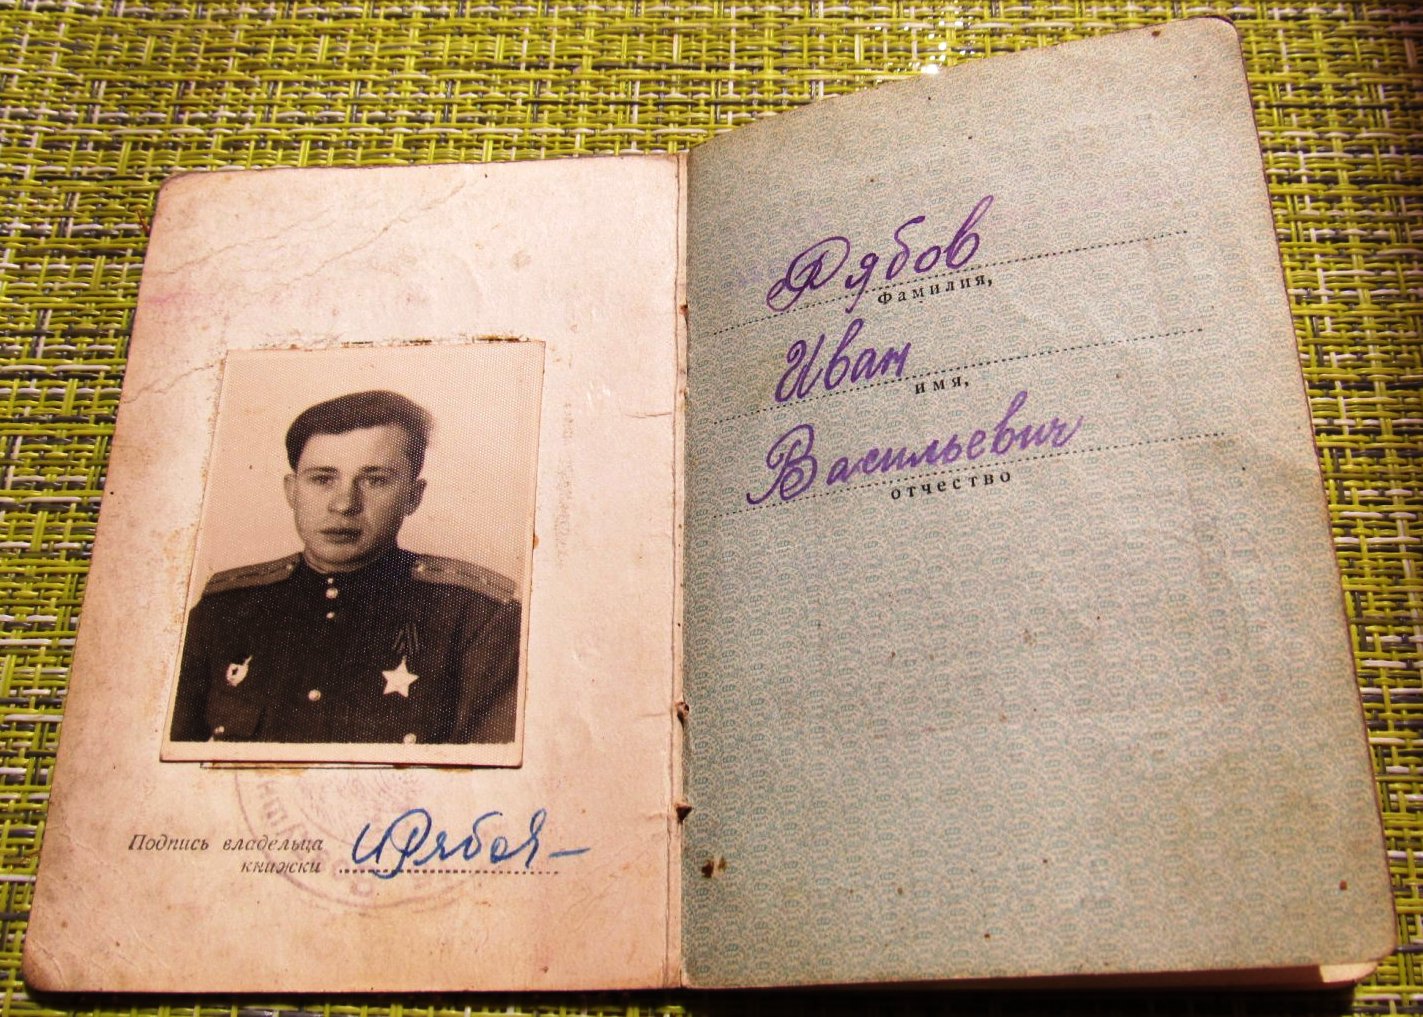 Подпись владельца
книжки
ИРябов
Рябов
Фамилия,
Иван
имя,
Васильевич
отчество